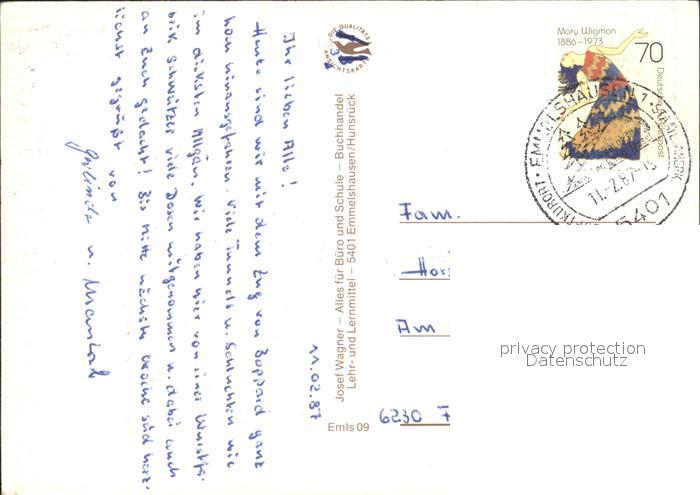 11.02.87
Ihr lieben Alle!
Heute sind wir mit dem Zug von Boppard ganz
hoch hinaufgefahren. Viele Tunnels u. Schluchten wie
im dicksten Allgäu. Wir haben hier von einer Wurstfa-
brik Schwälzer viele Dosen mitgenommen u. dabei auch
an Euch gedacht! Bis Mitte nächste Woche seid herz-
lichst gegrüßt von
u. Manfred
DIE QUALITÄTS
ANSICHTSKARTE
Josef Wagner – Alles für Büro und Schule – Buchhandel
Lehr- und Lernmittel – 5401 Emmelshausen/Hunsrück
Emls 09
Mary Wigman
1886–1973
70
Deutsche Bundespost
EMMELSHAUSEN 1
STAATL. ANERK.
LUFTKURORT
11.-2.87-15
5401
Fam.
Am
6230 F
privacy protection
Datenschutz